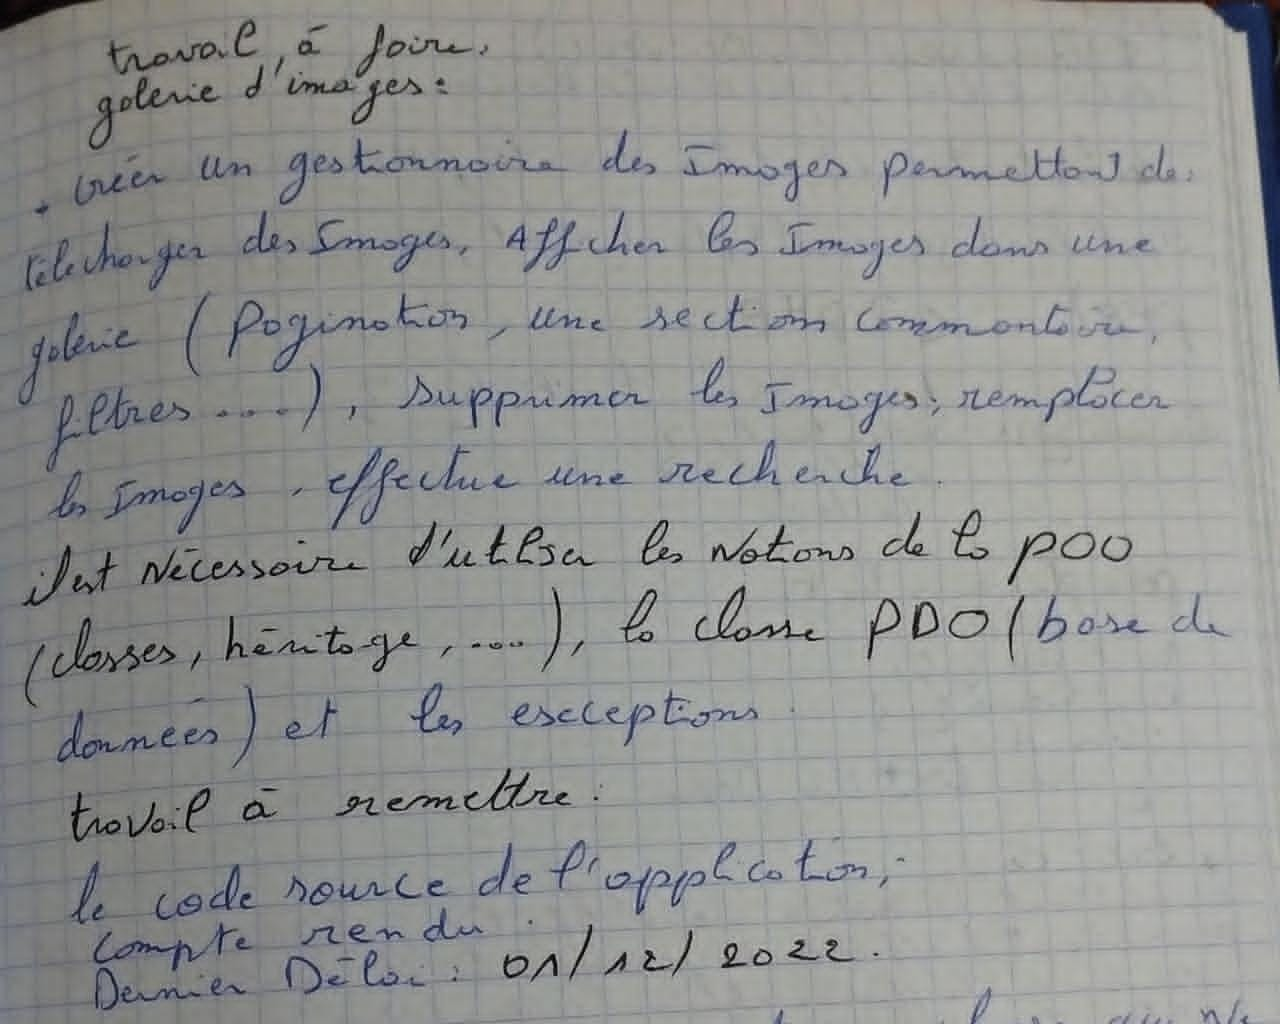 travail, à faire.
galerie d'images :
. créer un gestionnaire des Images permettant de :
télecharger des Images, Afficher les Images dans une
galerie (Pagination, une section commentaire,
filtres ....), supprimer les Images, remplacer
les Images, effectue une recherche.
il est Nécessaire d'utliser les Notions de la POO
(classes, héritage, ....), la classe PDO (base de
données) et les esceptions.
travail à remettre :
le code source de l'application,
compte rendu
Dernier Délai : 01/12/2022.